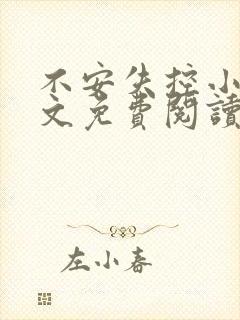 不安失控小
文免費閱讀
左小春